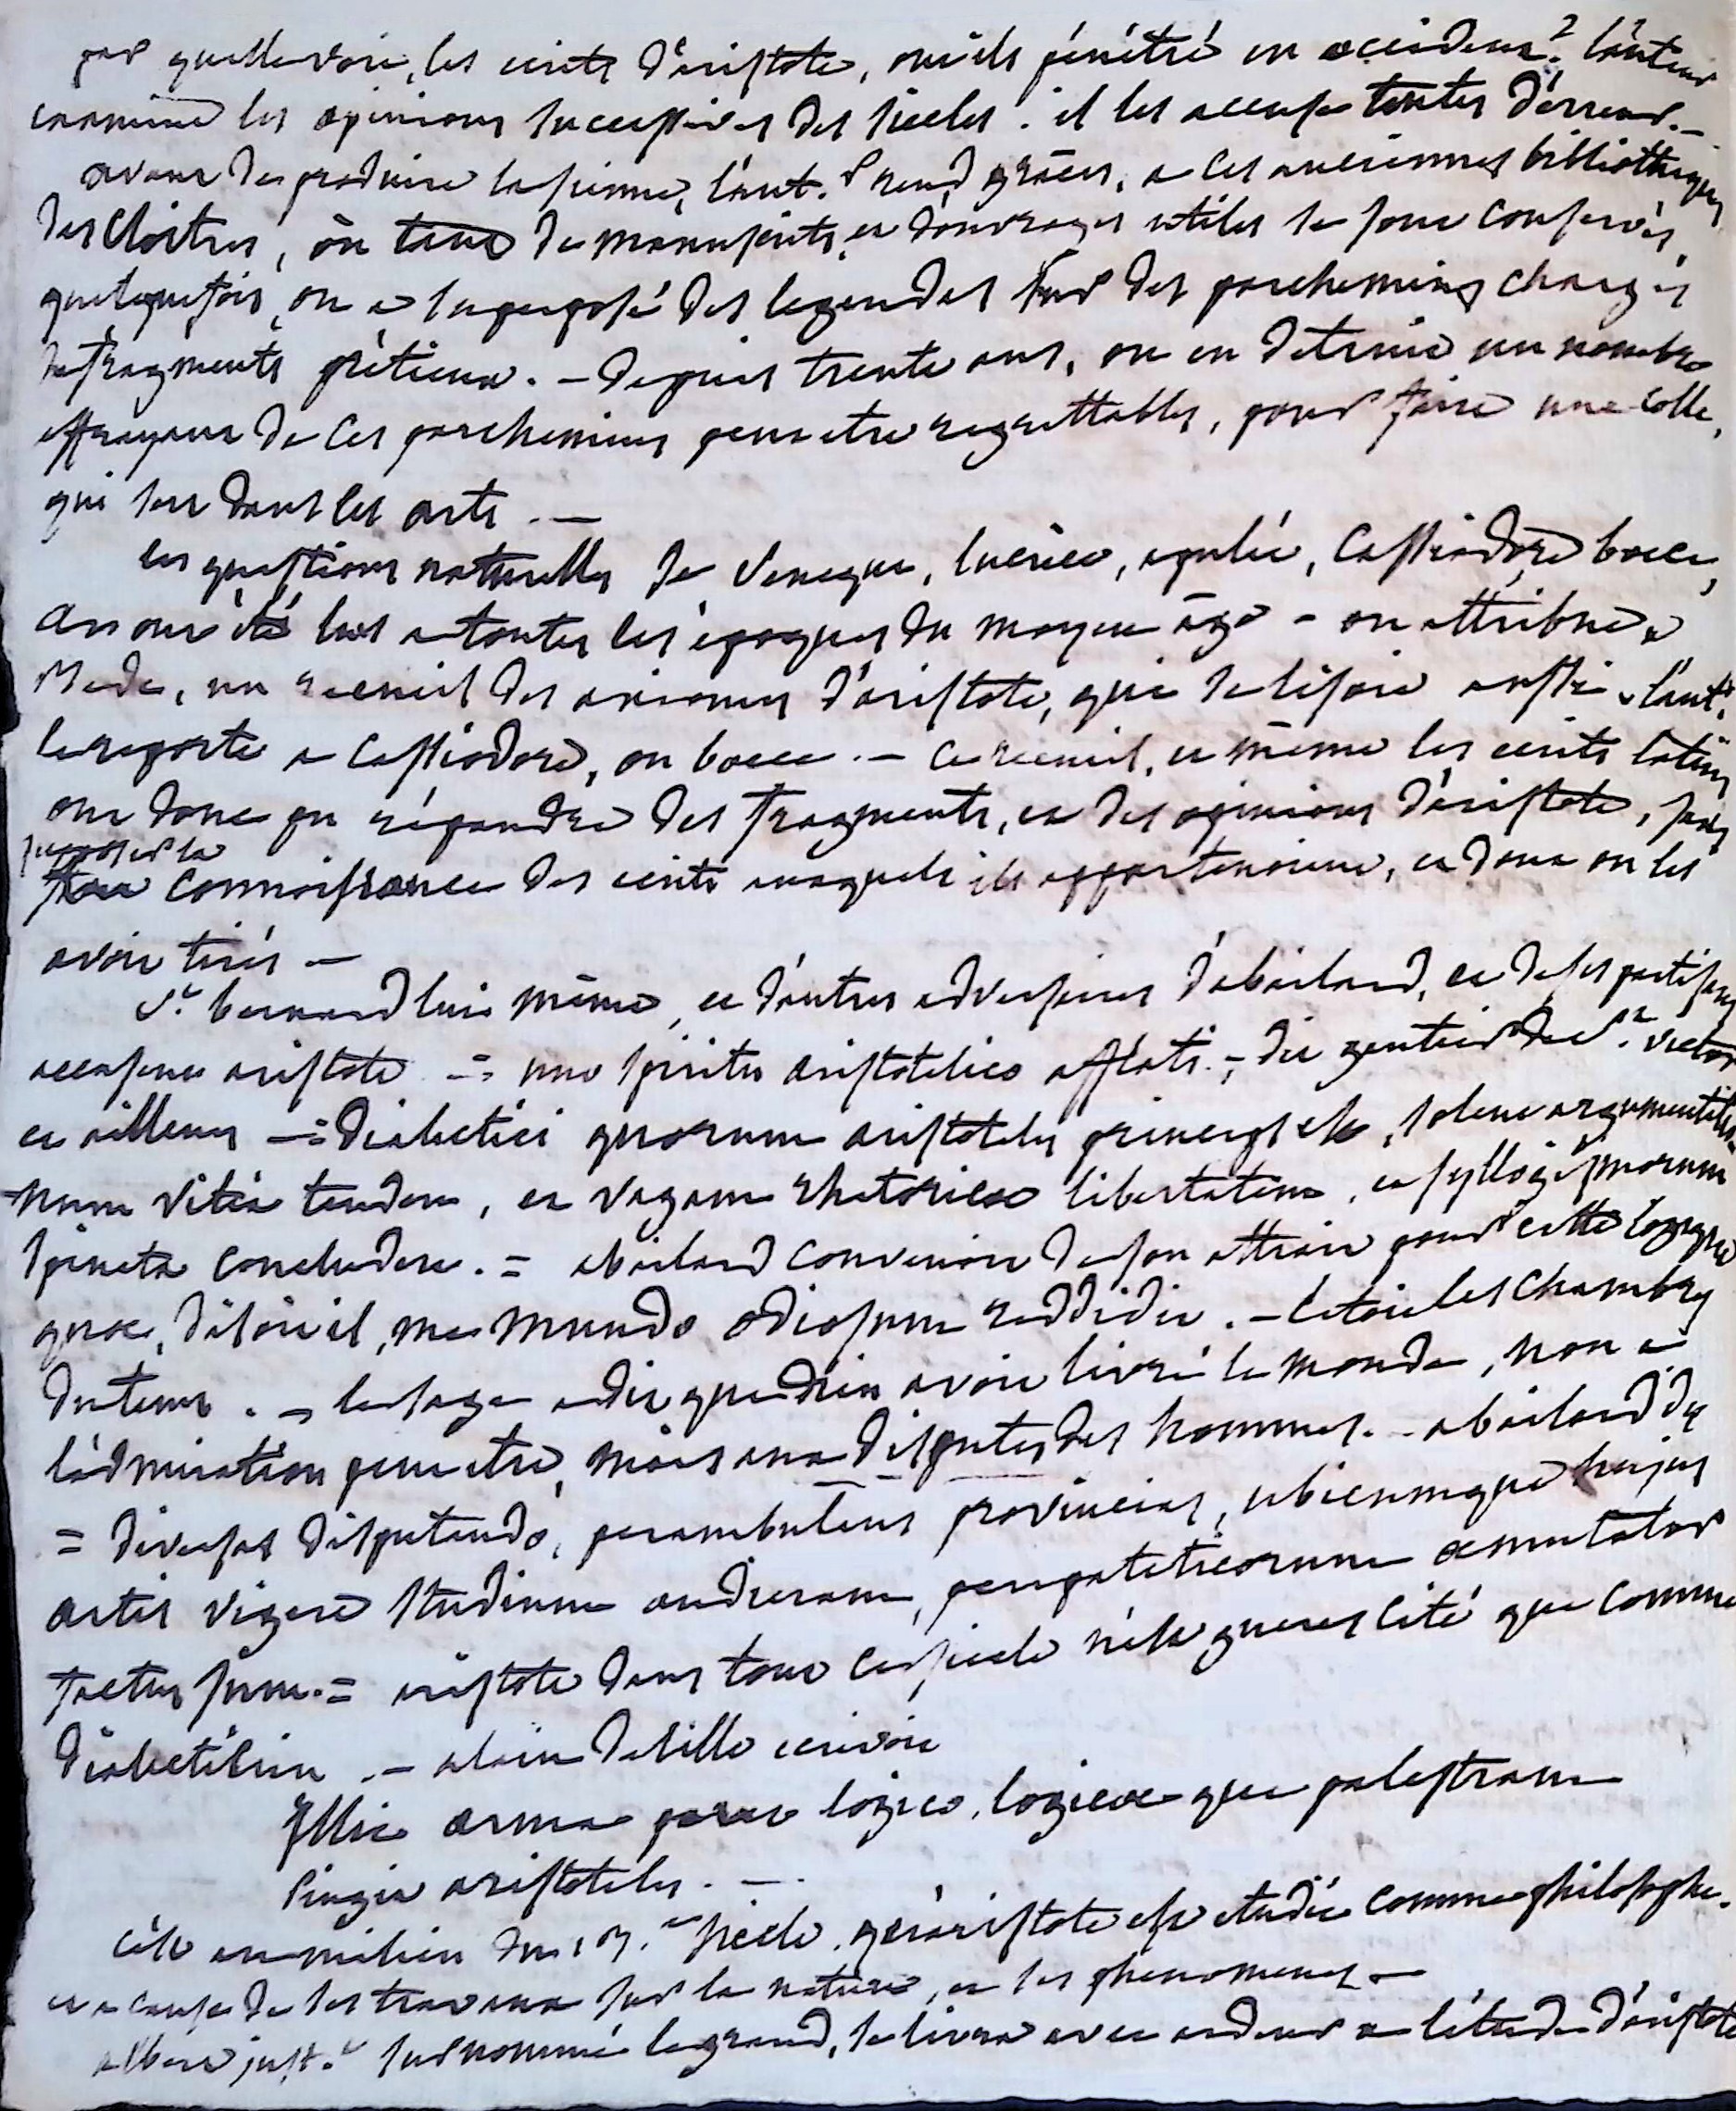 par quelle voie, les ecrits d'aristote, ont ils pénétré en occident? l'auteur
examine les opinions successives des siecles. il les accuse toutes d'erreur. —
avant de produire la sienne, l'aut.r rend grâces, a ces anciennes bibliotheques
des cloitres, ou tant de manuscrits, et d'ouvrages utiles se sont conservés,
quelquefois, on a superposé des legendes sur des parchemins chargés
de fragments prétieux. — depuis trente ans, on en detruit un nombre
effrayant de ces parchemins peut etre regrettables, pour faire une colle,
qui sert dans les arts. —
les questions naturelles de Seneque, lucrece, apulée, Cassiodore boece,
ont été lus a toutes les époques du moyen âge - on attribue a
Bede, un recueil des axiomes d'aristote, qui se lisoit aussi. l'aut.r
le reporte a Cassiodore, ou boece. — ce recueil, et même les ecrits latins
ont donc pu répandre des fragments, et des opinions d'aristote, sans
supposer la
connoissance des ecrits auxquels ils appartenoient, et dont on les
avoit tirés —
St. bernard lui même, et d'autres adversaires d'abailard, et de ses partisans
accusent aristote = uno spiritu aristotelico afflati. = dit gautier de St. victor
et ailleurs = dialectici quorum aristoteles princeps est, solent argumentatio
=num retia tendere, et vagam rhetoricae libertatem, et syllogismorum
spineta concludere. = abailard convenoit de son attrait pour cette logique
quae, disoit il, me mundo odiosum reddidit. — c'etoit les chambres
du tems. — le sage a dit que dieu avoit livré le monde, non a
l'admiration peut etre, mais aux disputes des hommes. - abailard dit
= diversas disputando, perambulans provincias, ubicumque hujus
artis vigere studium audieram, peripateticorum aemulator
factus sum. = aristote dans tout ce siecle n'est gueres cité que comme
dialecticien. — alain de lille ecrivoit
Illic arma parat logico, logicae que palestram
Pingit aristoteles. —.
c'est au milieu du 13.e siecle. qu'aristote est etudié comme philosophe.
et a cause de ses travaux sur la nature, et les phenomenes —
albert just.t surnommé le grand, se livra avec ardeur a l'étude d'aristote